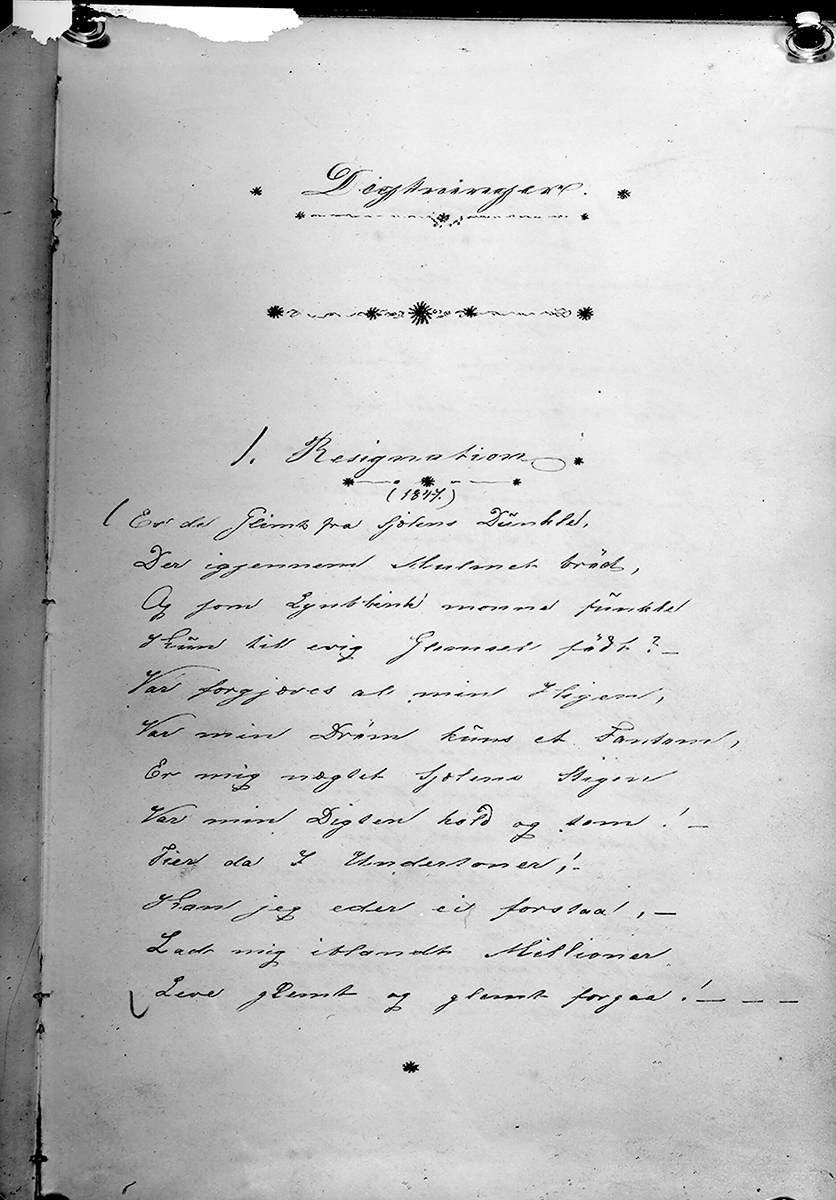 Digtninger.
1. Resignation
(1847.)
Er de Glimt fra Sjelens Dünkle,
Der igjennem Mulmet brød,
Og som Lynblink monne fünkle
Kün til evig Glemsel født? —
Var forgjæves al min Higen,
Var min Drøm küns et Fantom,
Er mig nægtet Sjælens Stigen
Var min Digten hold og tom! —
Tier da I Undertoner! —
Kan jeg eder ei forstaa, —
Lad mig iblandt Millioner
Leve glemt og glemt forgaa! — — —